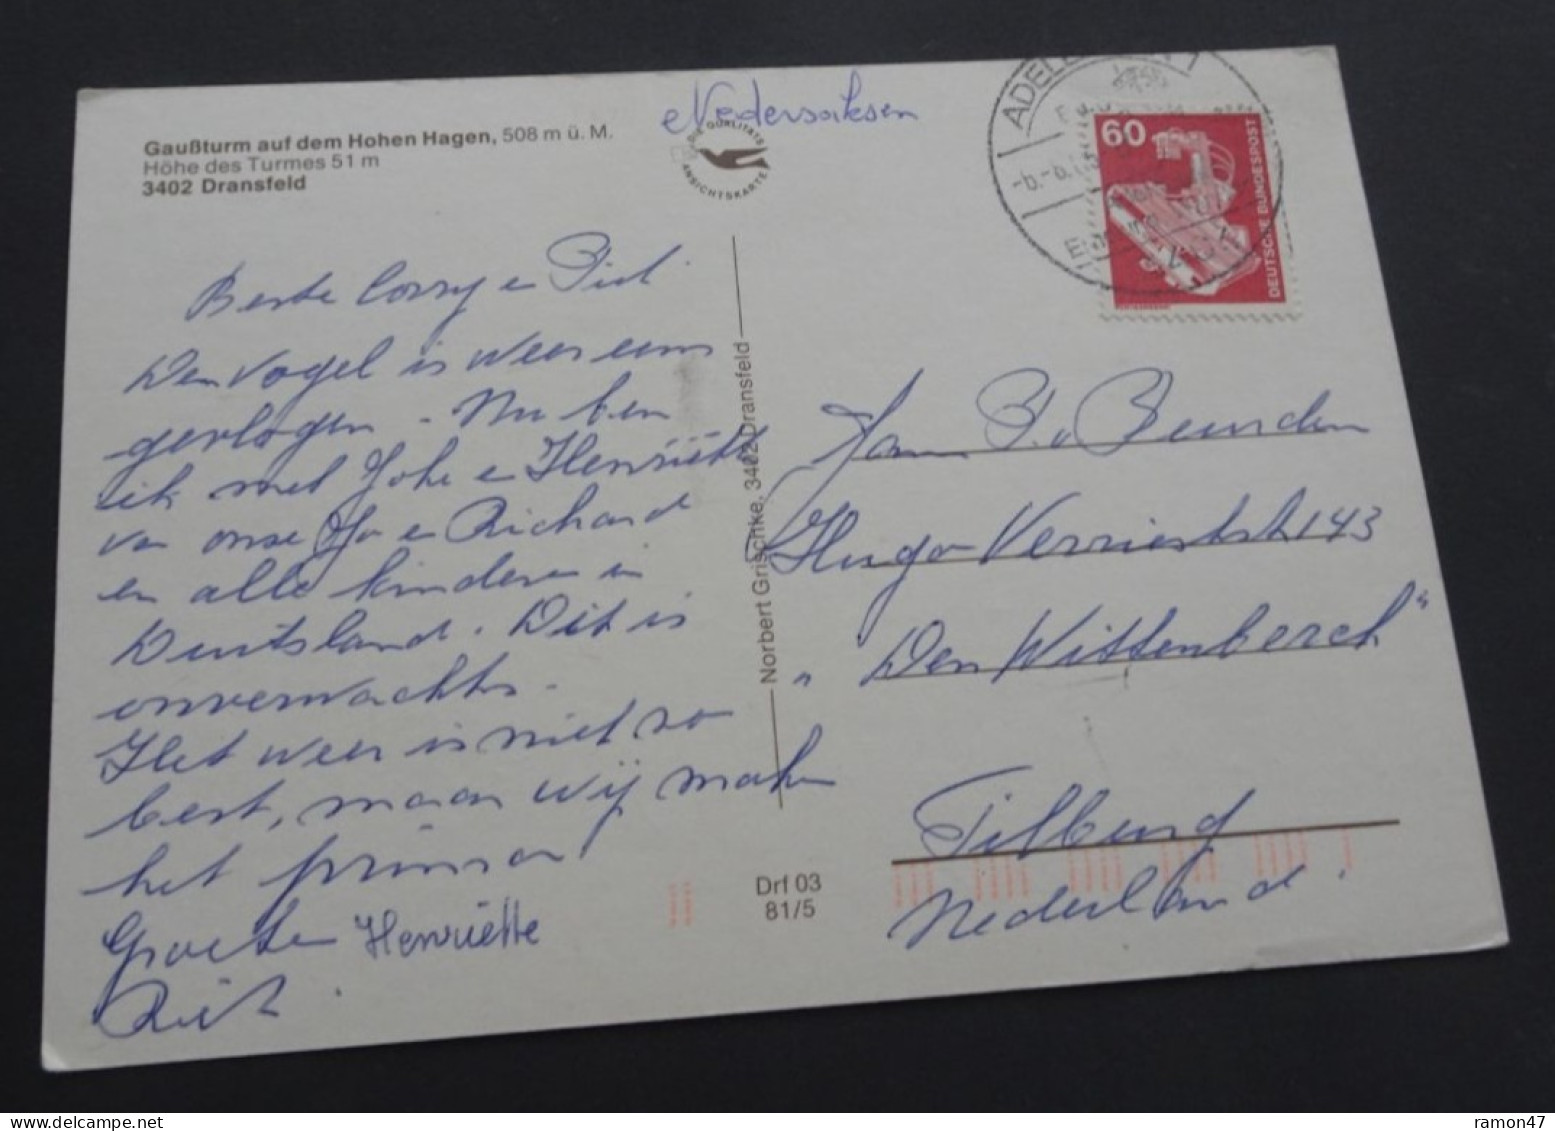 Gaußturm auf dem Hohen Hagen, 508 m ü. M.
Höhe des Turmes 51 m
3402 Dransfeld
Nedersaksen
DIE QUALITÄTS
ANSICHTSKARTE
60
DEUTSCHE BUNDESPOST
Beste Corry e Piet
Den Vogel is weer eens
gevlogen. Nu ben
ik met Joke e Henriëtte
van onze Jo e Richard
en alle kinderen in
Duitsland. Dit is
onverwachts.
Het weer is niet zo
best, maar wij maken
het prima!
Groeten Henriëtte
Riet.
Norbert Grischke, 3402 Dransfeld
Drf 03
81/5
Fam P. v Beurden
Hugo Verrieststr 143
"Den Wittenberch"
Tilburg
Nederland.
ramon47